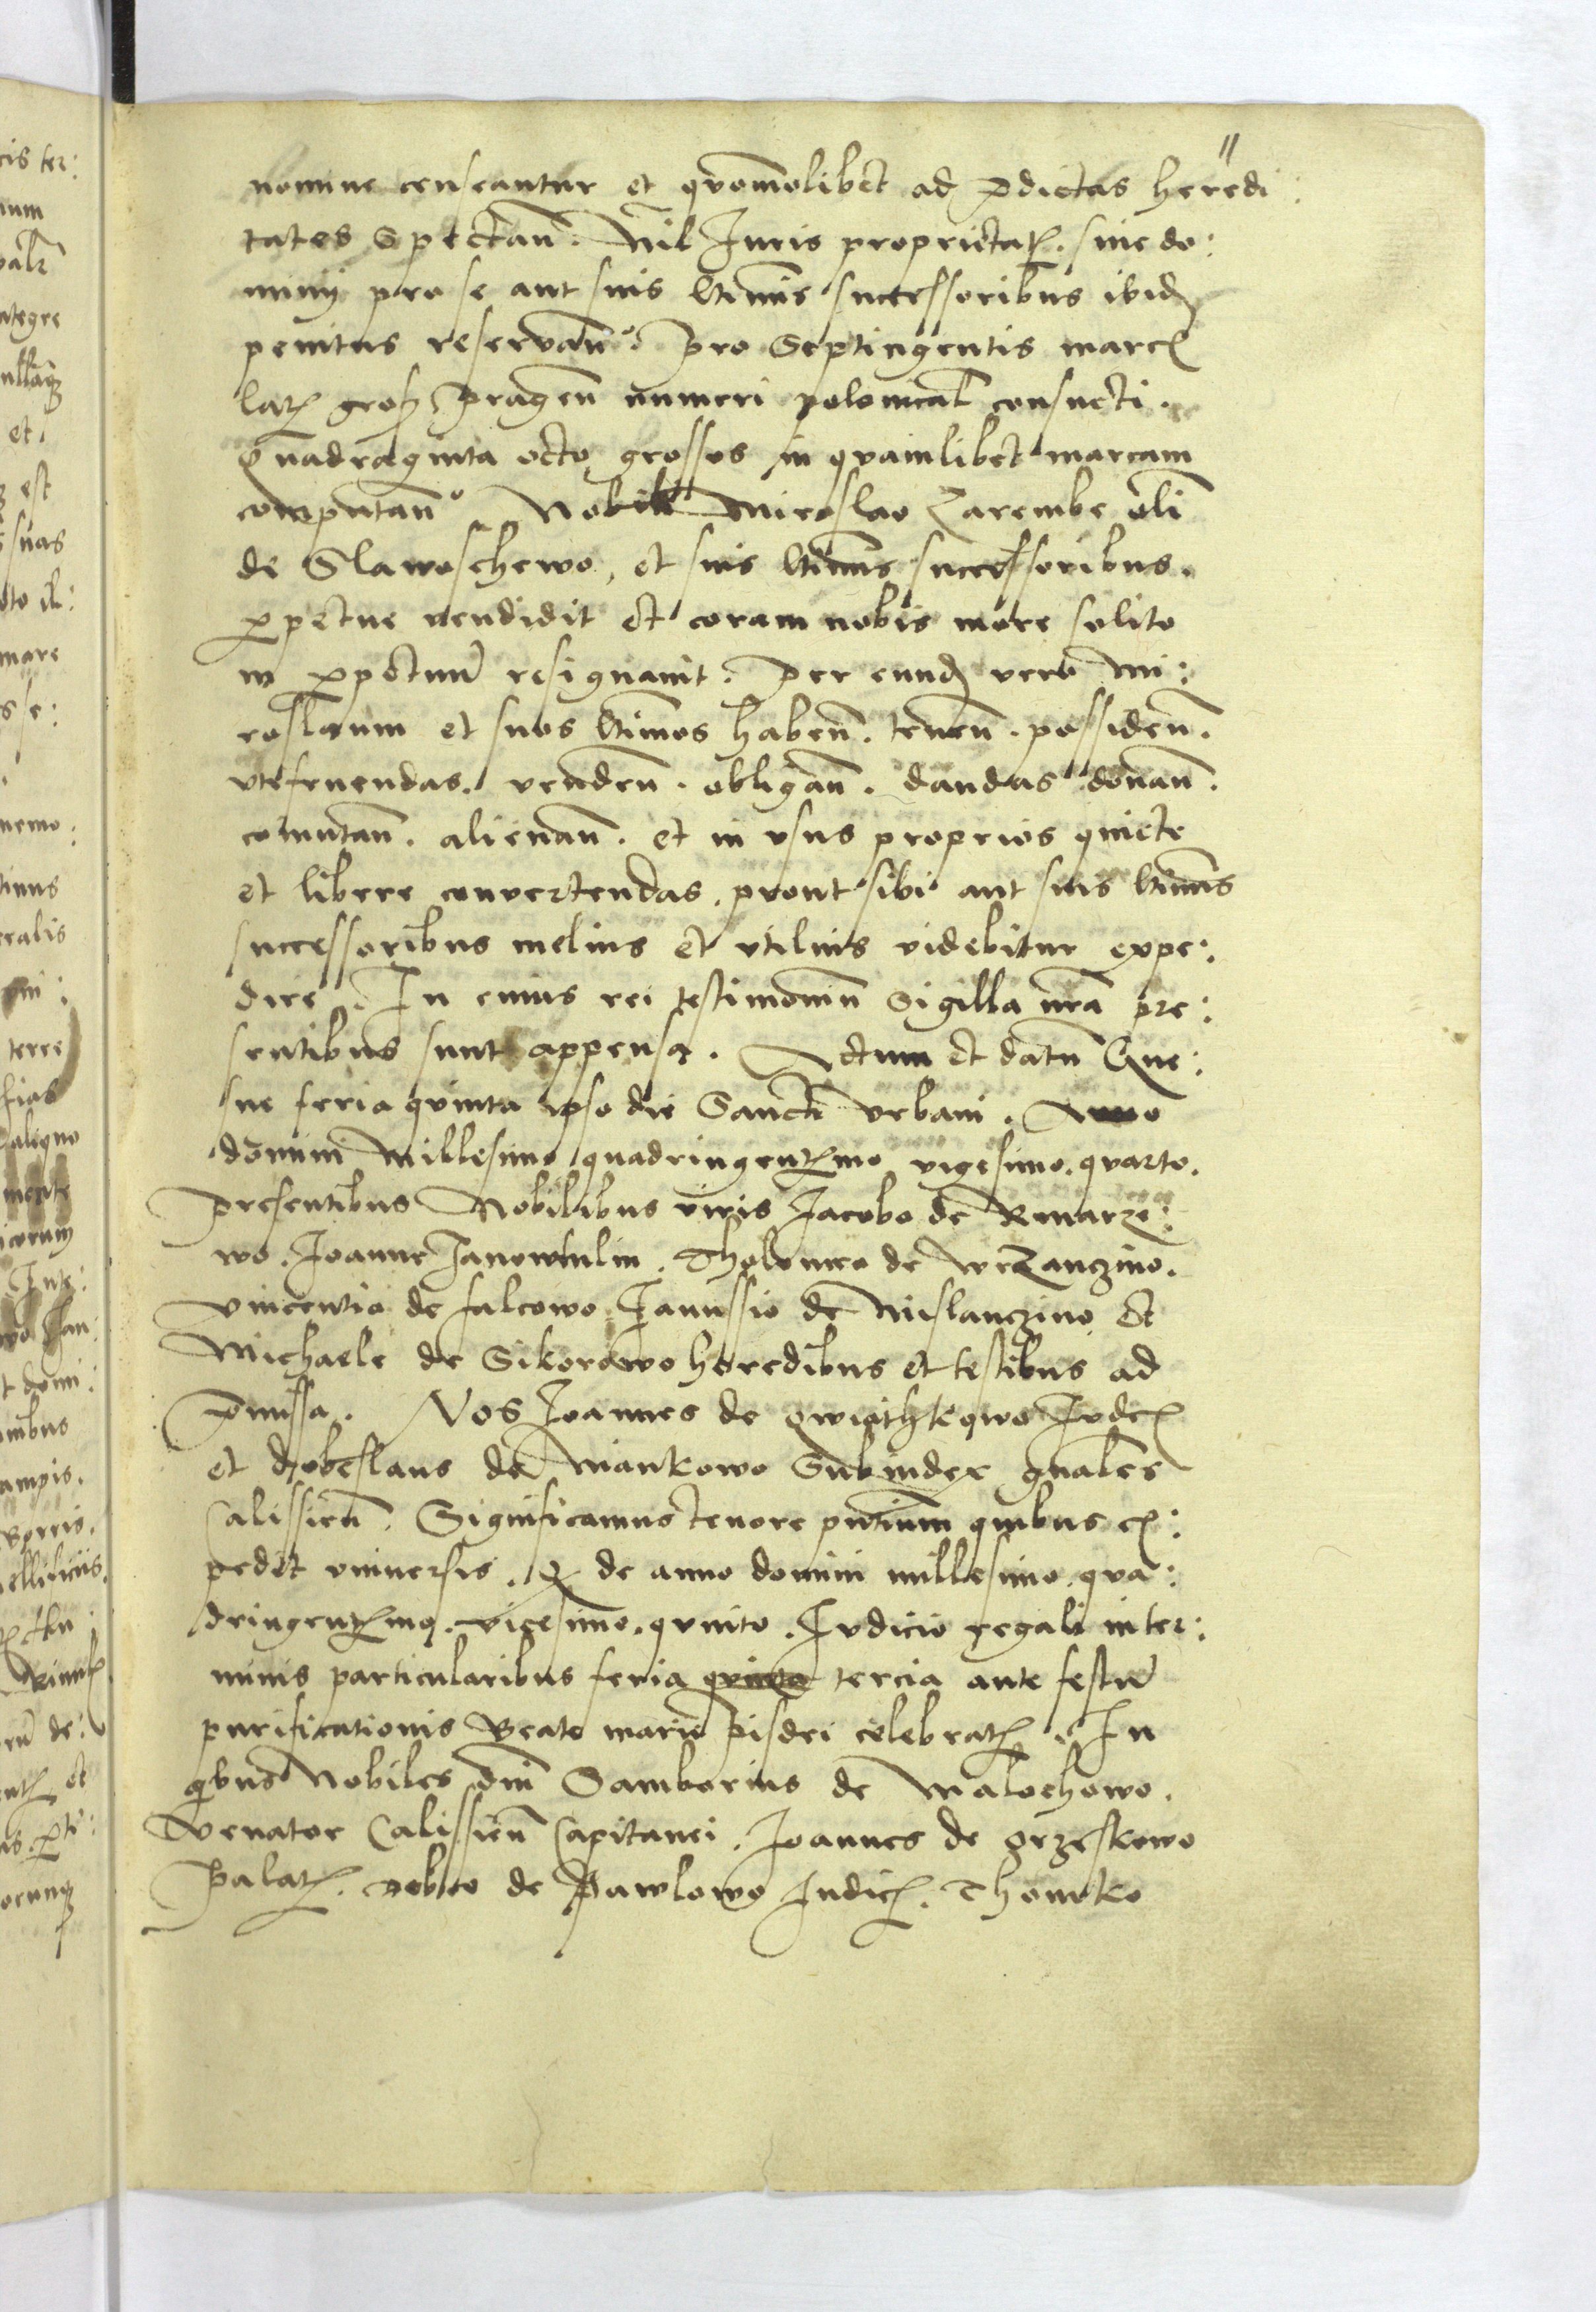 11
nomine censeantur et quomolibet ad pdictas heredi:
tates Spectan. Nil Iuris proprietat. siue do:
minij pro se aut suis ltimis successoribus ibid
penitus reseruan. Pro Septingentis marc
lat gros Pragen numeri polonical consueti.
Quadraginta octo grossos in quamlibet marcam
computan Nobili Miroslao Zarembe oli
de Slawoschewo, et suis ltimis successoribus.
ppetue uendidit et coram nobis more solito
in ppetuu resignauit. Per eund vero Mi:
roslaum et suos ltimos haben. tenen. possiden.
vtefruendas. venden. obligan. dandas donan.
comutan. alienan. et in vsus proprios quiete
et libere conuertendas, prout sibi aut suis ltimis
successoribus melius et vtilius videbitur expe:
dire. In cuius rei testimoniu Sigilla nra pre:
sentibus sunt appensa. Actum et datu Gne:
sne feria quinta ipso die Sancti Vrbani. Anno
domini Millesimo quadringentmo vigesimo. quarto.
Presentibus Nobilibus viris Jacobo de Rmarze:
wo. Joanne Janowfulin. Tholomeo de wrzanczino.
Vincentio de falcowo Janussio de Mislanczino et
Michaele de Sikorowo heredibus et testibus ad
pmissa. Nos Joannes de gwiathkowo Judex
et dobeslaus de Mankowo Subiudex gnales
Calissien. Significamus tenore pntium quibus ex:
pedit vniuersis. Q de anno domini millesimo. qua:
dringentmo. vicesimo. quinto. Judicio regali in ter:
minis particularibus feria quinta tercia ante festu
purificationis Beate marie Pisdri celebrat. In
qbus Nobiles dni Samborius de Malochowo.
Venator Calissien Capitanei. Joannes de grzeskowo
Palat. de Pawlowo Judic. Thomko